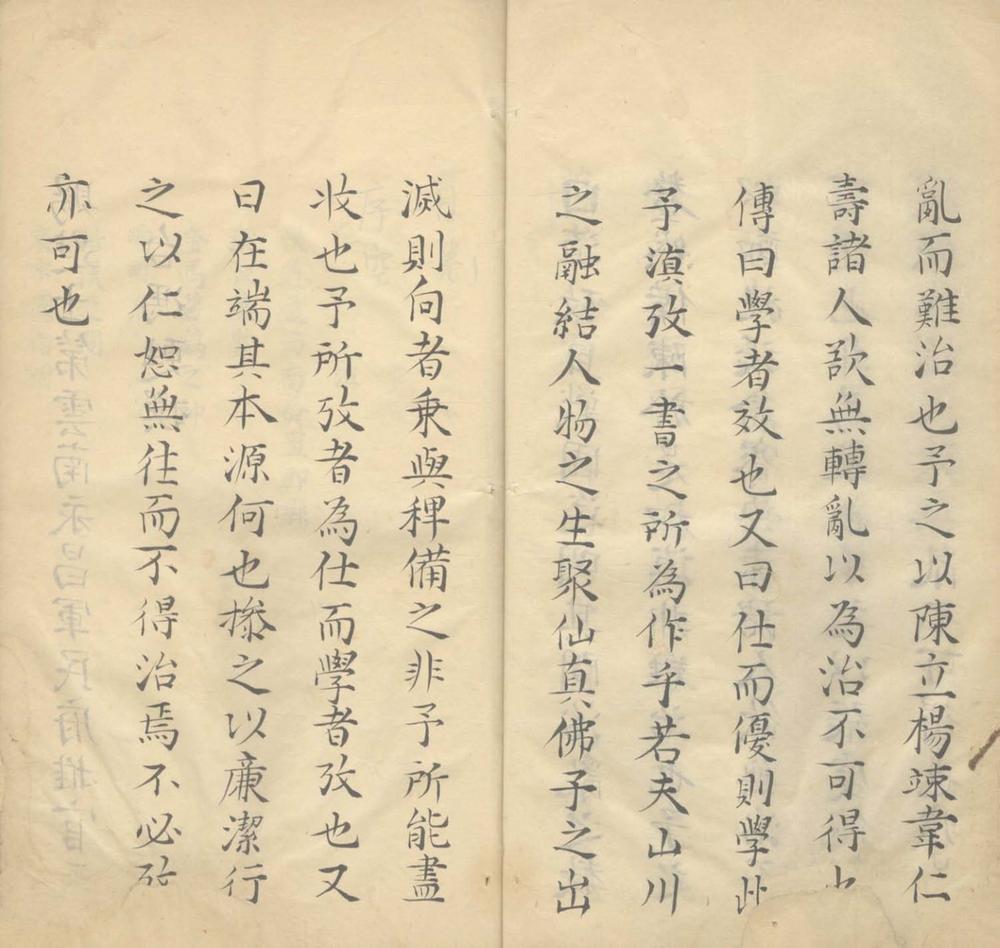 亂而難治也予之以陳立楊竦韋仁
壽諸人欲無轉亂以為治不可得也
傳曰學者效也又曰仕而優則學此
予滇攷一書之所為作乎若夫山川
之融結人物之生聚仙真佛子之出
滅則向者乗與稗備之非予所能盡
收也予所攷者為仕而學者攷也又
曰在端其本源何也操之以廉潔行
之以仁恕無往而不得治焉不必攷
亦可也